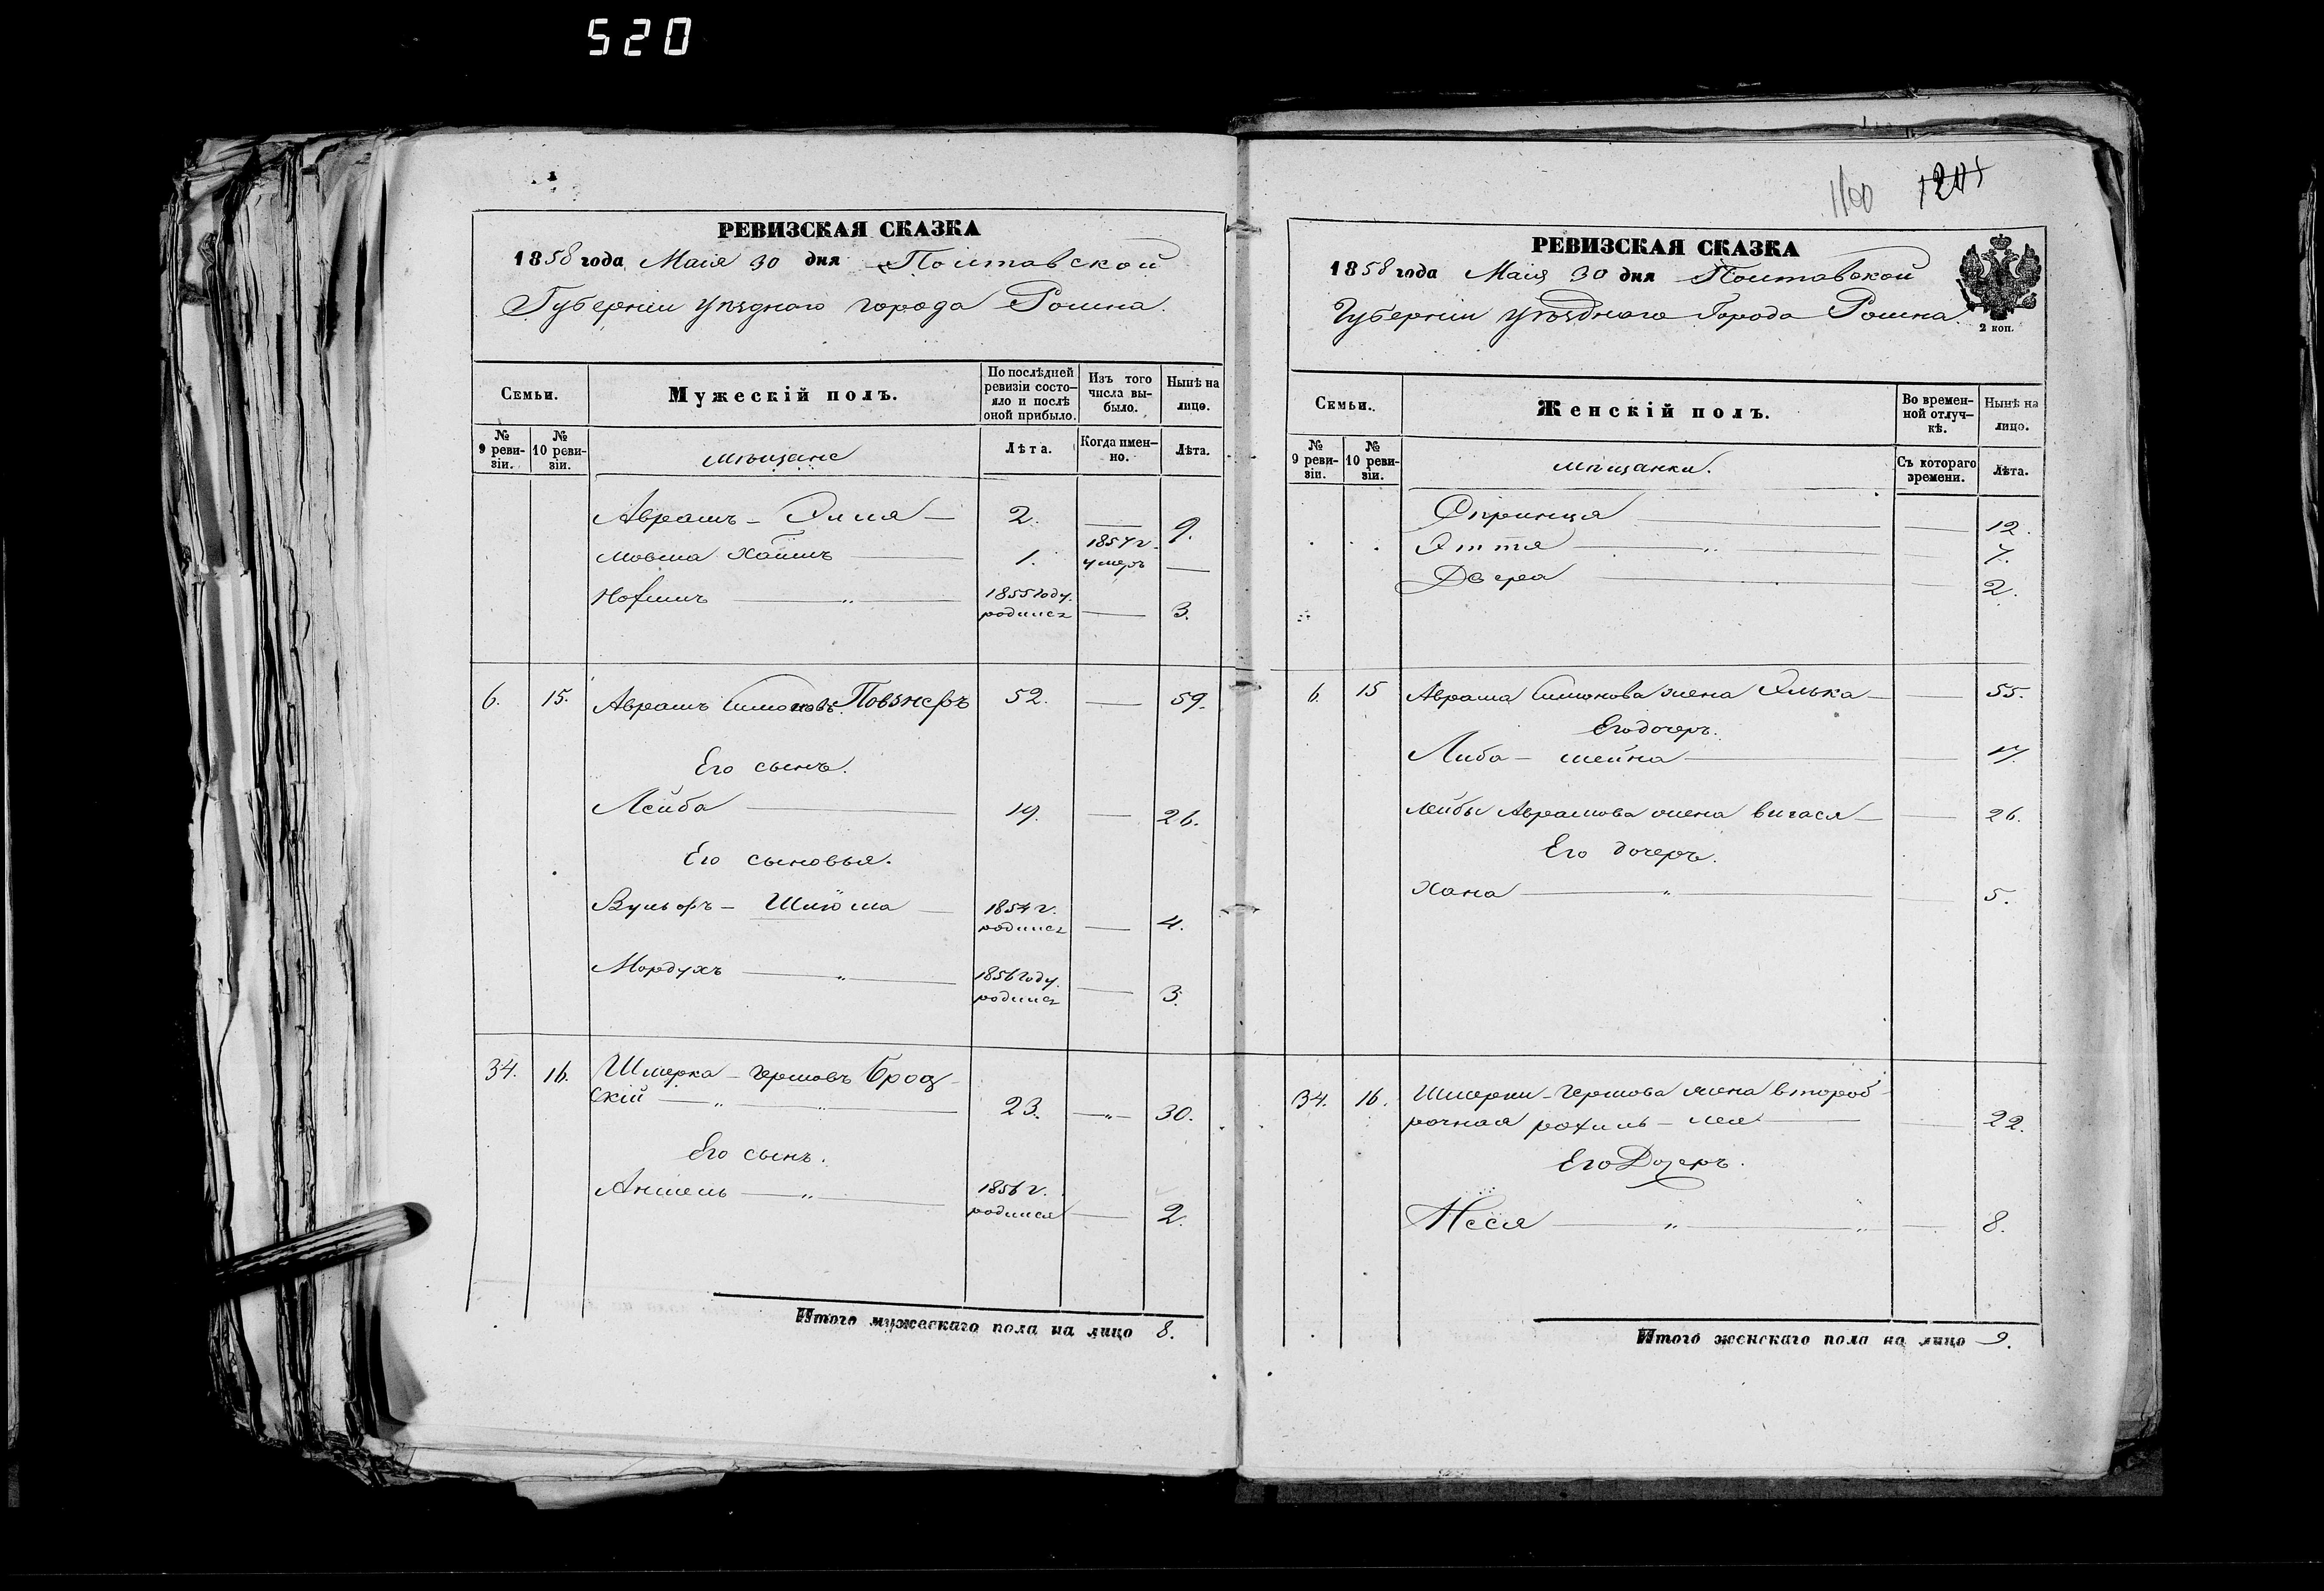 520
РЕВИЗСКАЯ СКАЗКА
1858 года Маія 30 дня Полтавской
Губерніи уѣзднаго города Ромна.
Семьи.
Мужескій полъ.
По послѣдней ревизіи состояло и послѣ оной прибыло.
Изъ того числа выбыло.
Нынѣ на лицо.
№ 9 ревизіи.
№ 10 ревизіи.
мѣщане
Лѣта.
Когда именно.
Лѣта.
Аврамъ - Элия — 2. — 9.
Мовша Хаимъ — 1. 1854 г. умеръ —
Нохимъ — „ — 1855 году. родился — 3.
6. 15. Аврамъ Симоновъ Повзнеръ 52. — 59.
Его сынъ.
Лейба — 19. — 26.
Его сыновья.
Вульфъ - Шлюма — 1854 г. родился — 4.
Мордухъ — „ — 1856 году. родился — 3.
34. 16. Шмерка - Гершовъ Брод-
скій — „ — „ — 23. — „ — 30.
Его сынъ.
Аншель — „ — 1856 г. родился — 2.
Итого мужескаго пола на лицо 8.
1100 1201
РЕВИЗСКАЯ СКАЗКА
1858 года Маія 30 дня Полтавской
Губерніи уѣзднаго Города Ромна.
2 коп.
Семьи.
Женскій полъ.
Во временной отлучкѣ.
Нынѣ на лицо.
№ 9 ревизіи.
№ 10 ревизіи.
мѣщанки.
Съ котораго времени.
Лѣта.
Спринця — — 12.
Эття — „ — — 7.
Двера — — 2.
6. 15 Аврама Симонова жена Элька — — 55.
Его дочерь.
Либа - шейна — — 17.
Лейбы Аврамова жена вигася — — 26.
Его дочерь.
Хана — „ — — 5.
34. 16. Шмерки - Гершова жена второб-
рочная рохиль - лея — — 22.
Его Дочерь.
Неся — „ — „ — 8.
Итого женскаго пола на лицо 9.